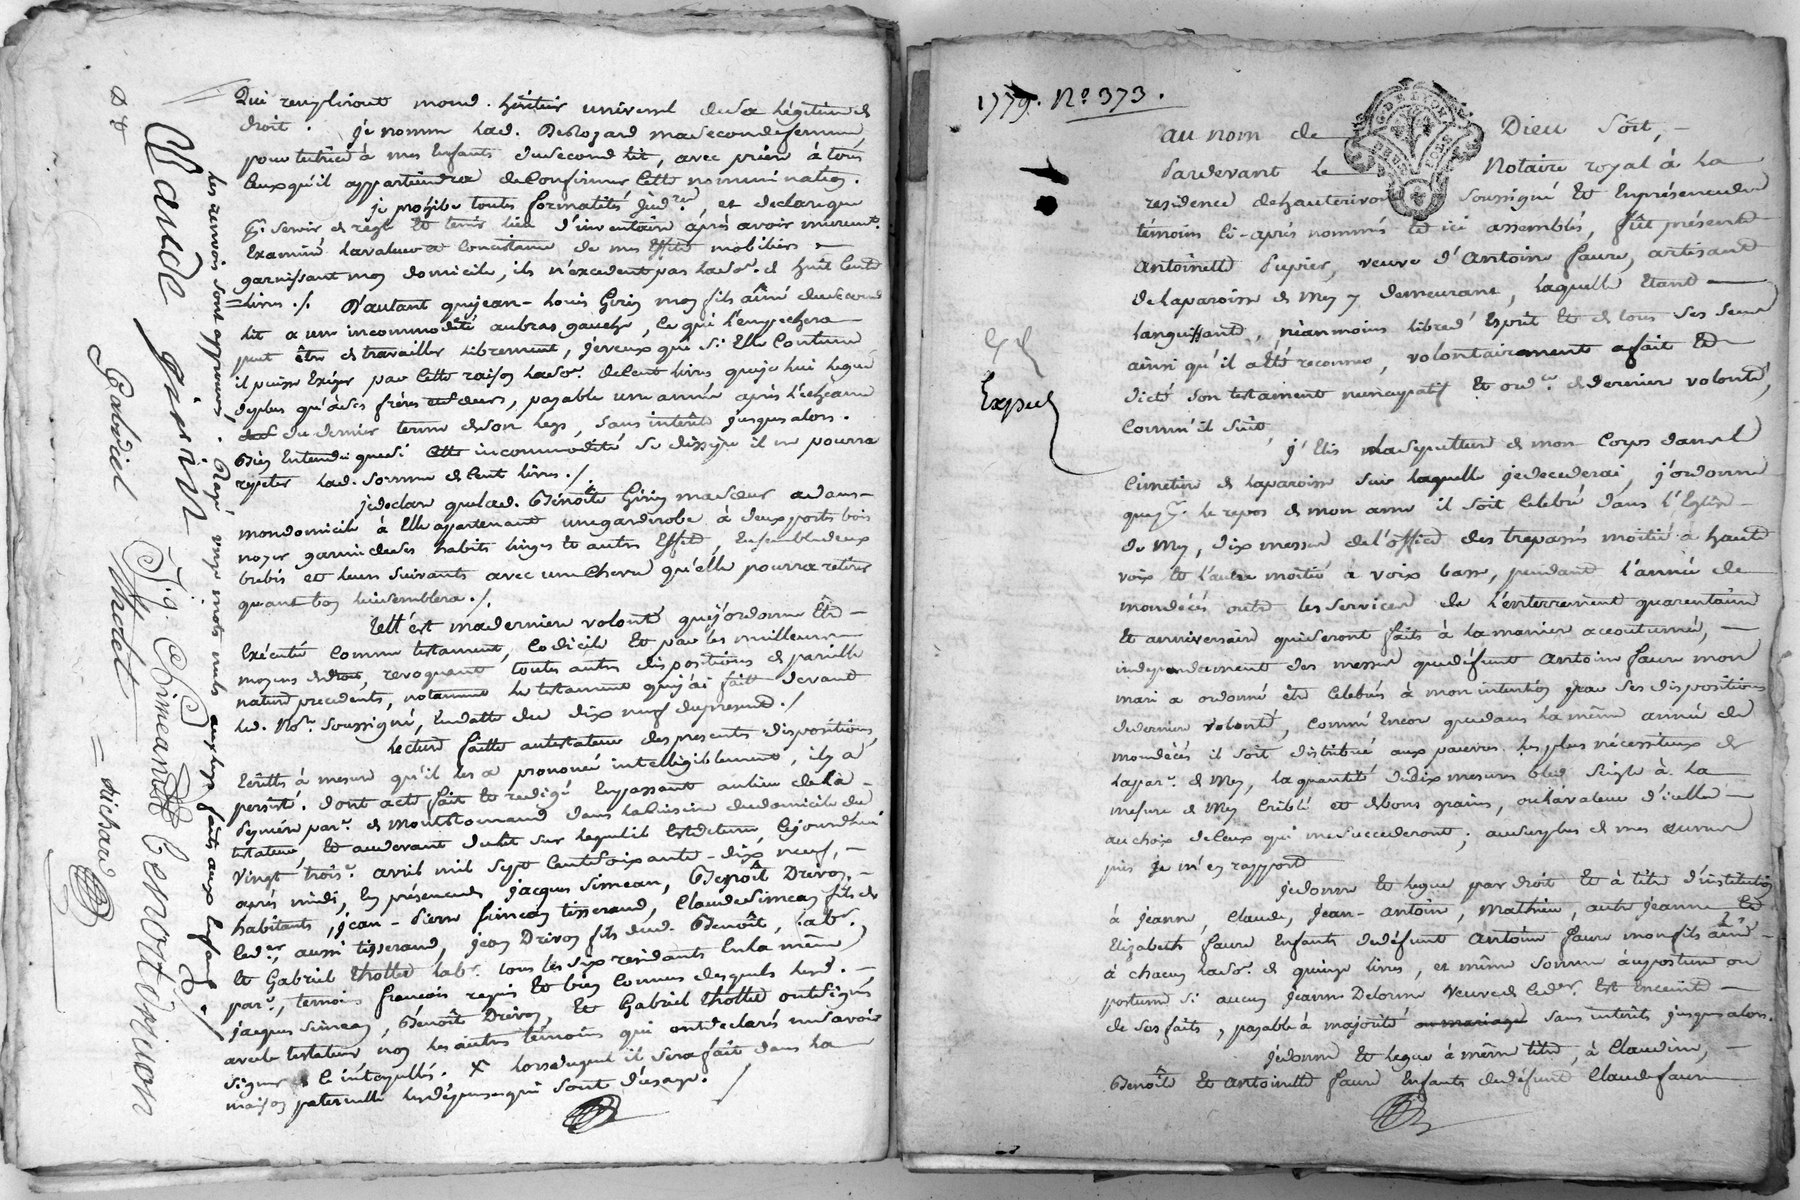 Qui rempliront mond. héritier universel de sa légitime de
droit. je nomme lad. Deslozard ma seconde femme
pour tutrice à mes Enfants du second lit, avec prière à tous
Ceux qu'il appartiendra de Confirmer Cette nomination.
je prohibe toutes formalités jud.res et declare que
servir de règle et tenir lieu d'inventaire après avoir murem.t
Examiné la valeur et Consistance de mes Effets mobiliers
garnissant mon domicile, ils n'excedent pas la so.e de huit Cents
= livres ./. D'autant que jean-Louis Girin mon fils aîné du second
lit a une incommodité au bras gauche, Ce qui l'empechera
peut être de travailler librement, je veux que si Elle Continue
il puisse Exiger par Cette raison la so.e de Cent livres que je lui legue
de plus qu'à ses frères, payable une année après l'échéance
du dernier terme de son legs, sans intérêts jusques alors.
Bien Entendu que si Cette incommodité se dissipe il ne pourra
repeter lad. somme de Cent livres ./
je declare que lad. Benoîte Girin ma soeur a dans
mon domicile à Elle appartenant une garderobe à deux portes bois
noyer garnie de ses habits linges et autres Effets, Ensemble deux
brebis et leurs suivants avec une Chevre qu'elle pourra retirer
quand bon lui semblera ./
Telle est ma dernière volonté que j'ordonne Être
Exécutée Comme testament, Codicile Et par les meilleurs
moyens de droit, revoquant toutes autres dispositions de pareille
nature precedents, notamment le testament que j'ai fait devant
led. No.re soussigné, En datte du dix neuf du présent ./
Lecture faitte au testateur des presentes dispositions,
Ecrittes à mesure qu'il les a prononcé intelligiblement, il y a
persisté. dont acte fait Et redigé En passant au lieu de la
par.e de Montromand dans la Cuisine du domicile du
testateur Et au devant du lit sur lequel il Est detenu, Cejourdhui
Vingt trois.e avril mil sept Cent soixante-dix neuf,
après midi, En présence de jacques Simean, Benoît Drivon,
habitants, jean-Pierre Simean tisserand, Claude Simean fils de
led.er, aussi tisserand, jean Drivon fils dud. Benoît, lab.r,
Et Gabriel Thollet lab.r tous les six residants En la même
par.e, temoins François requis Et bien Connus desquels led.
jacques Simean, Benoît Drivon, Et Gabriel Thollet ont signé
avec le testateur, non les autres témoins qui ont declarés ne savoir
signer de Ce interpellés. X lors duquel il sera fait dans la
maison paternelle les dépenses qui sont d'usage. /
Les renvois sont approuvés. Rayé onze mots nuls aux legs faits aux Enfans ./
Claude girin J.q. Simean Benoit drivon
Gabriel thollet = Richard
1779. No. 373.
GD. DE LYON
DEUX SOLS
Au nom de Dieu soit,
Pardevant le Notaire royal à la
residence de hauterivoire soussigné Et En présence des
témoins Ci-après nommés Et ici assemblés, fût présente
Antoinette Pupier, veuve d'Antoine Faure, artisant
de la paroisse de Mey y demeurant, laquelle Etant
languissante, néanmoins libre d'Esprit Et de tous ses sens
ainsi qu'il a Eté reconnu, volontairement a fait Et
dicté son testament nuncupatif Et ord.ce de derniere volonté,
Comm'il suit,
Exped
j'Elis ma sepulture de mon Corps dans le
Cimetiere de la paroisse sur laquelle je decederai, j'ordonne
que p.r le repos de mon ame il soit Celebré dans l'Eglise
de Mey, dix messes de l'office des trepassés moitié à haute
voix Et l'autre moitié à voix basse, pendant l'année de
mon décés outre les services de l'enterrement quarentaine
Et anniversaire qui seront faits à la maniere accoutumée,
independament des messes que défunt Antoine Faure mon
mari a ordonné être Celebrés à mon intention par ses dispositions
de derniere volonté, Comme Encore que dans la même année de
mon décés il soit distribué aux pauvres les plus nécessiteux de
la par.e de Mey, la quantité de dix mesures bled seigle à la
mesure de Mey Criblé et de bons grains, ou la valeur d'icelle
au choix de Ceux qui me succederont; au surplus de mes œuvres
pies je m'en rapporte
je donne Et legue par droit Et à titre d'institution
à jeanne, Claude, jean-antoine, Mathieu, autre jeanne Et
Elizabeth Faure Enfants de défunt Antoine Faure mon fils aîné
à chacun la so.e de quinze livres, et même somme à un posthume ou
postume si aucun jeanne Delorme veuve de led.er Est Enceinte
de ses faits, payable à majorité ou mariage sans intérêts jusques alors.
je donne Et legue à même titre, à Claudine,
Benoîte Et Antoinette Faure Enfants de défunt Claude Faure